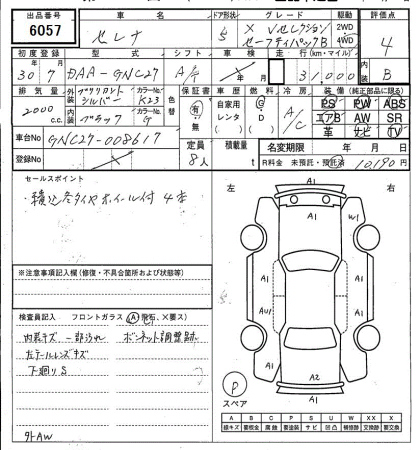 出品番号 車名 ドア形状 グレード 駆動 評価点
6057 セレナ 5 X Vセレクション 2WD 4
セーフティパックB 4WD
初度登録 型式 シフト 車検 走行(km・マイル) 内装
30 7 DAA-GNC27 A/T 31,000 B
排気量 外装 ブリリアントシルバー カラーNo. K23 色替 保証書 車歴 燃料 冷房 装備(純正部品に限る)
2000 c.c. 内装 ブラック カラーNo. G 有・無 自家用 レンタ G D A/C PS PW ABS
エアB AW SR
革 ナビ TV
車台No GNC27-008617 定員 8人 積載量 t 名変期限 年 月 日
登録No R料金 未預託・預託済 10,190円
セールスポイント
・積込冬タイヤホイール付 4本
左 右
A1
A1 W1
A1 A1
AU1 A1
A1 A1
A2
P
スペア
※注意事項記入欄(修復・不具合箇所および状態等)
検査員記入欄 フロントガラス(A飛石、X要ス)
内装キズ 一部汚れ ボンネット調整跡
左テールレンズキズ
下廻りS
外AW
A B C P S U W XX X
線キズ 要板金 腐蝕 要塗装 サビ 凹凸 補修跡 交換跡 要交換